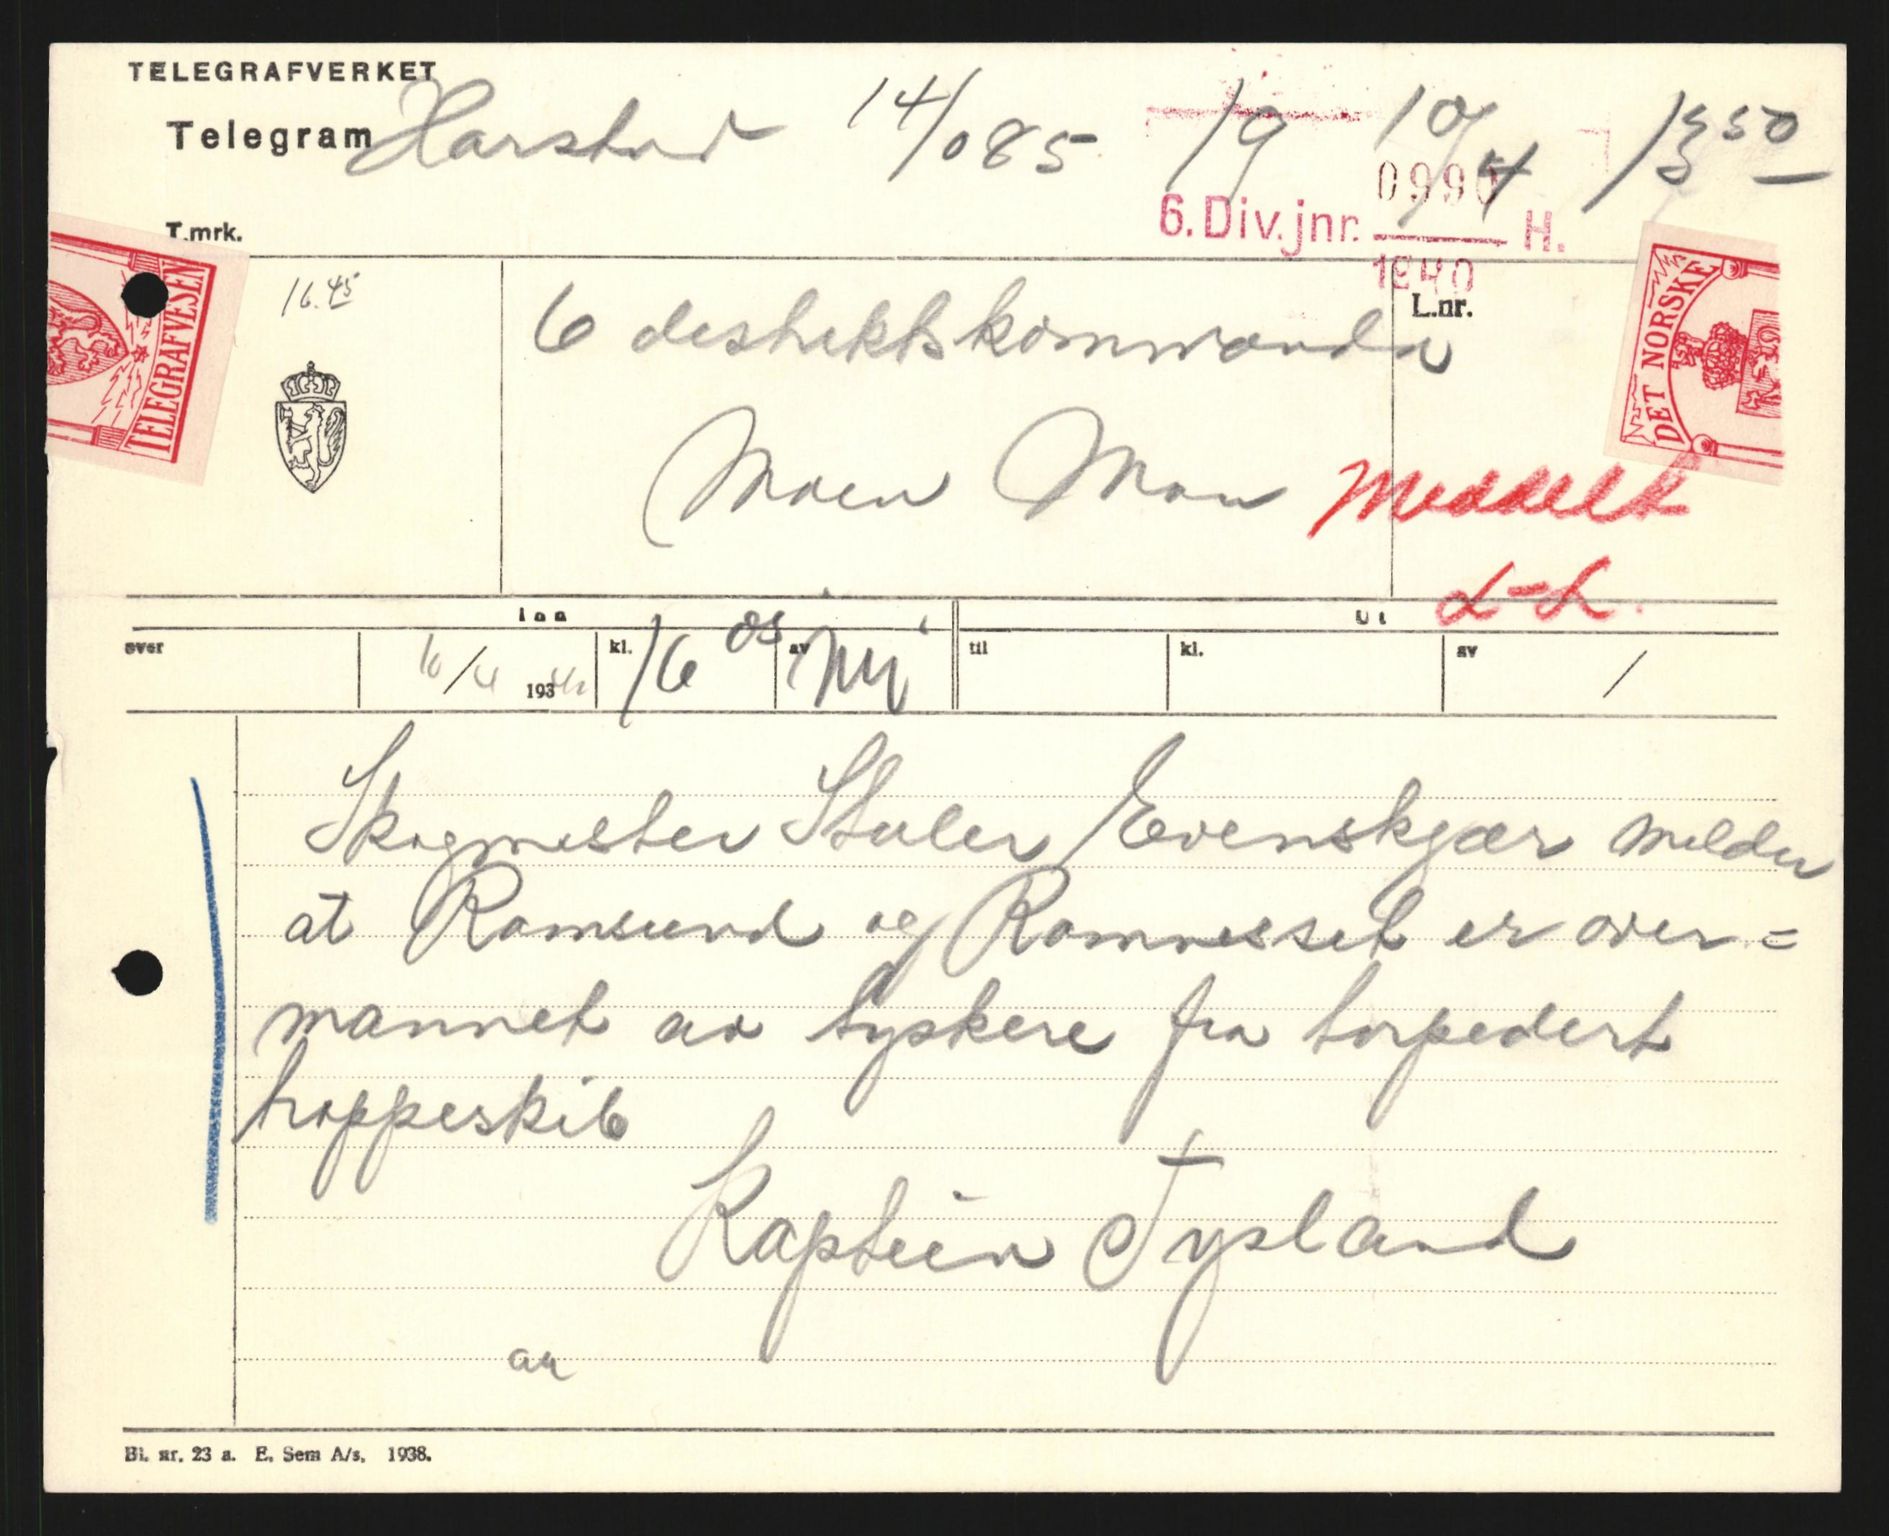 TELEGRAFVERKET
Telegram Harstad 14/085 19 10/4 1550
0990
6. Div. jnr. H.
1940
T.mrk.
16.45
L.nr.
6 destriktskommando
Moen Mou
TELEGRAFVESEN
DET NORSKE
Meddelt
L-L.
Inn
Ut
over
10/4 1940
kl. 16 05
av
til
kl.
av
Skogmester Støler Evenskjær melder
at Ramsund og Ramnesset er over=
mannet av tyskere fra torpedert
troppeskib
Kaptein Tysland
Bl. nr. 23 a. E. Sem A/s. 1938.